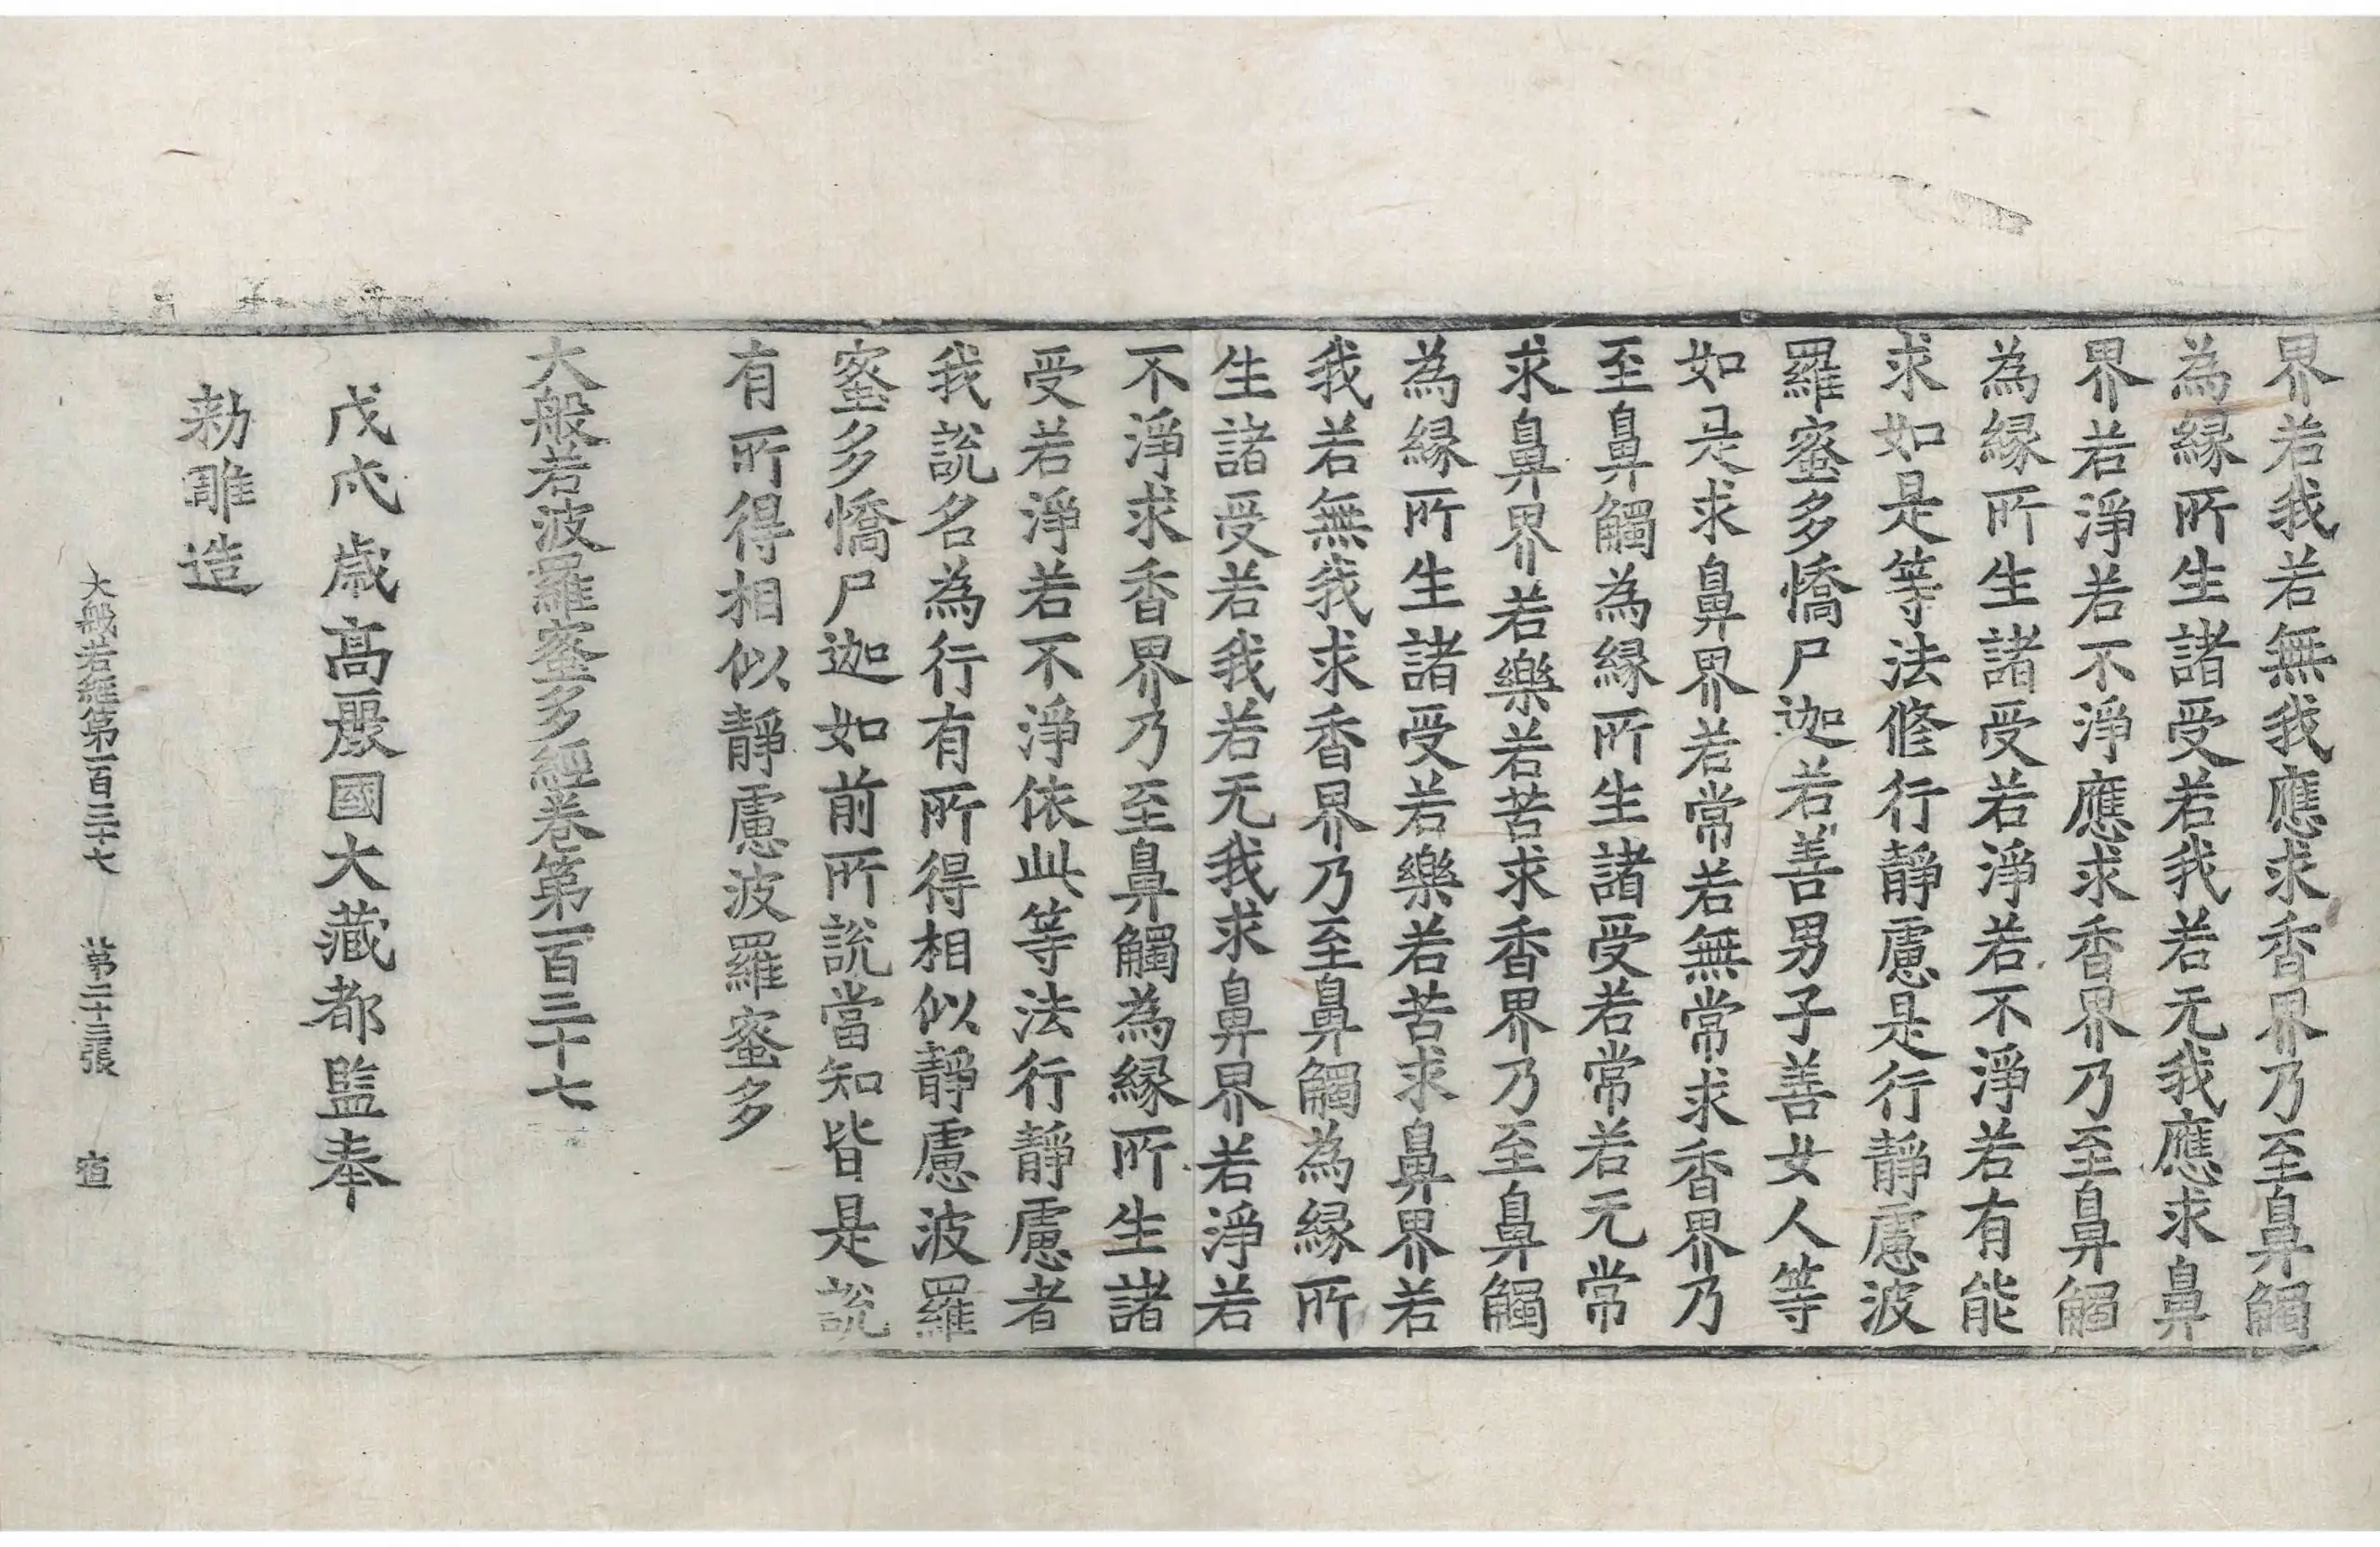 界若我若無我應求香界乃至鼻觸
為縁所生諸受若我若无我應求鼻
界若淨若不淨應求香界乃至鼻觸
為縁所生諸受若淨若不淨若有能
求如是等法修行靜慮是行靜慮波
羅蜜多憍尸迦若善男子善女人等
如是求鼻界若常若無常求香界乃
至鼻觸為縁所生諸受若常若无常
求鼻界若樂若苦求香界乃至鼻觸
為縁所生諸受若樂若苦求鼻界若
我若無我求香界乃至鼻觸為縁所
生諸受若我若无我求鼻界若淨若
不淨求香界乃至鼻觸為縁所生諸
受若淨若不淨依此等法行靜慮者
我說名為行有所得相似靜慮波羅
蜜多憍尸迦如前所說當知皆是說
有所得相似靜慮波羅蜜多
大般若波羅蜜多經卷第一百三十七
戊戌歲高麗國大藏都監奉
勅雕造
大般若經第一百三十七 第二十三張 宿